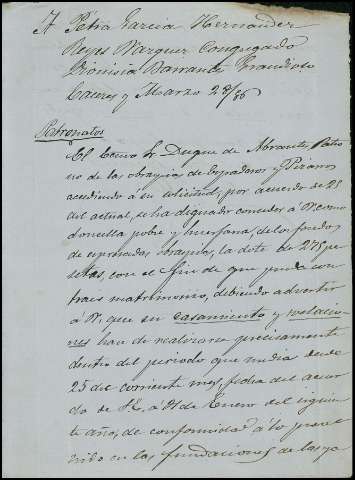 A Petra Garcia Hernandez
Reyes Vazquez Conyugado
Dionisia Barrantes
Caceres y Marzo 28/86
Patronatos
El Excmo Sr Duque de Abrantes, Patro
no de las obras pias de y Pizarro
accediendo á su solicitud, por acuerdo de 25
del actual, se ha dignado conceder á V, como
doncella pobre y huerfana, de los fondos
de expresadas obras pias, la dote de 275 pe
setas, con el fin de que pueda con
traer matrimonio, debiendo advertir
á V, que su casamiento y velacio
nes han de realizarse precisamente
dentro del periodo que media desde
25 del corriente mes, fecha del acuer
do de S.E, á 31 de Enero del siguien
te año, de conformidad á lo preve
nido en las fundaciones de las ya